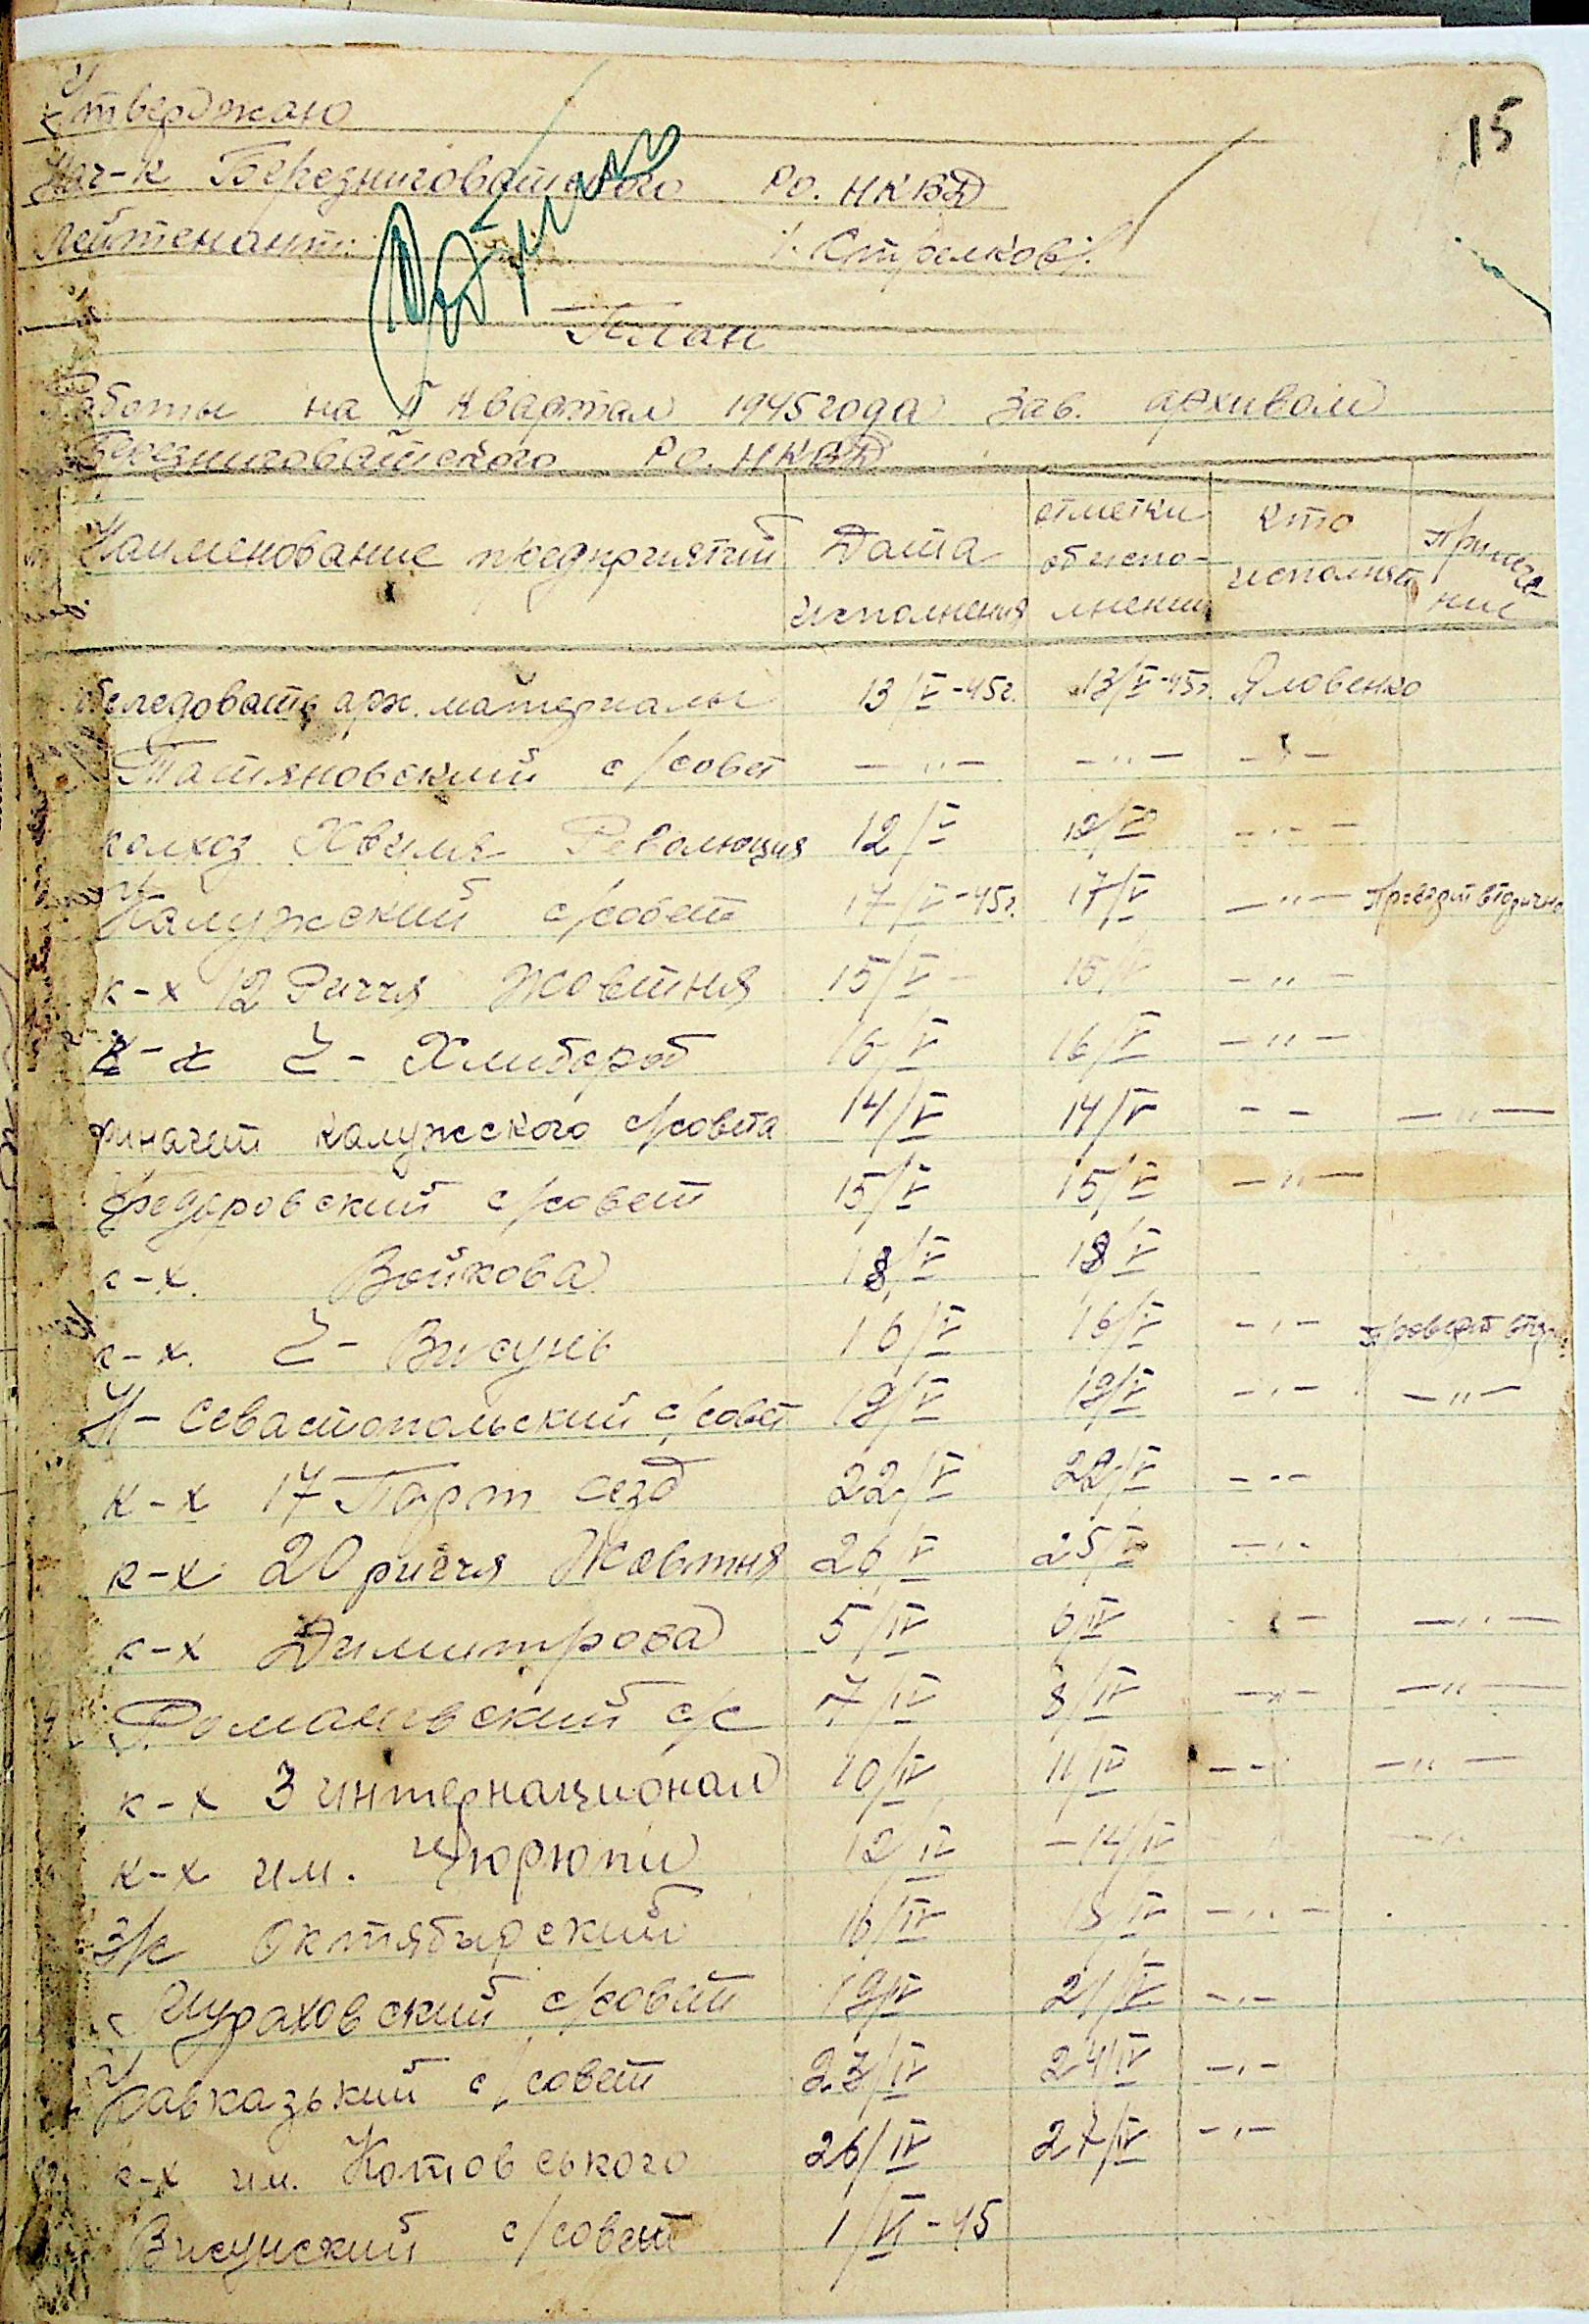 15
Утверджаю
Нач-к Березниговатского Ро. НКВД
Лейтенант: /. Стрелков/.
План
Работы на II квартал 1945 года зав. архивом
Березниговатского Ро. НКВД
Наименование предприятий Дата исполнения отметки об испо-лнении кто исполняет Примеча ние
обследовать арх. материалы 13/V-45г. 13/V-45г. Яловенко
Татяновский с/совет —"— —"— —"—
колхоз Хвиля Революция 12/V 12/V —"—
Калужский с/совет 17/V-45г. 17/V —"—
к-х 12 Риччя Жовтня 15/V- 15/V —"
к-х 2- Хлибороб 16/V 16/V —"—
калужского с/совета 14/V 14/V - - —"—
Федоровский с/совет 15/V 15/V —"—
к-х. Войкова 18/V 18/V
к-х. 2- Висунь 16/V 16/V -"-
Н- Севастопольский с/совет 19/V 19/V -"- —"—
к-х 17 Парт сезд 22/V 22/V -"-
к-х 20 риччя Жовтня 26/V 25/V -"-
к-х Димитрова 5/IV 6/IV -"- —"—
Романовский с/с 7/IV 8/IV —"— —"—
к-х 3 интернационал 10/IV 11/IV -"- —"—
к-х им. Цюрюпи 12/IV -14/IV -"- -"-
З/с Октябырский 16/IV 18/IV —"—
Мураховский с/совет 19/IV 21/IV -"-
Кавказький с/совет 23/IV 24/IV -"-
к-х им. Котовського 26/IV 27/IV -"-
Висунский с/совет 1/VI-45